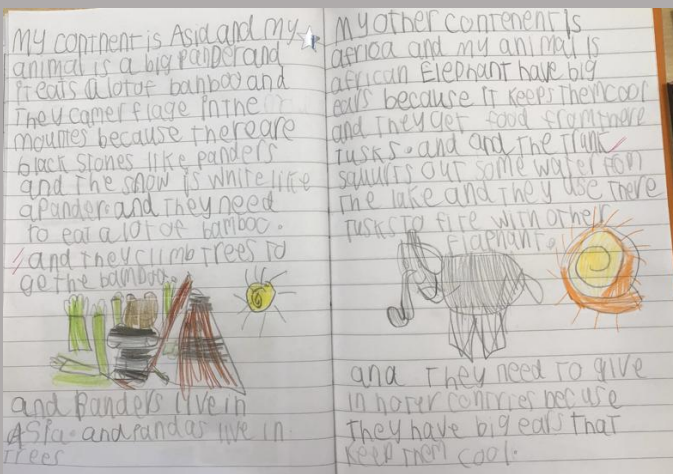 My continent is Asia and my
animal is a big pander and
it eats a lot of banboo and
They camerflage in the
mountes because there are
black stones like panders
and the snow is white like
a pander. and they need
to eat a lot of bamboo.
and they climb trees to
get the bamboo.
and Panders live in
Asia. and pandas live in
trees
my other contenent is
africa and my animal is
african Elephant have big
ears because it keeps them cool
and they get food from there
Tusks. and and the trunk
squirts out some water fom
the lake and they use there
Tusks to fite with other
Elaphant.
and they need to give
in hoter contries because
they have big ears that
keep them cool.